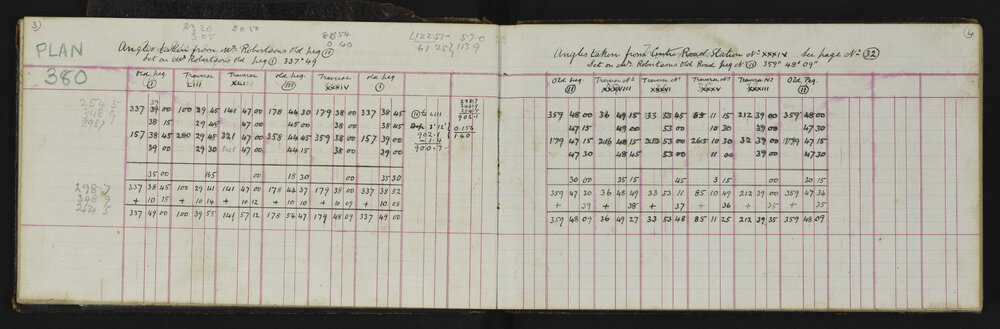 3
PLAN
380
Angles taken from Mr Robertsons Old peg II
Set on Mr Robertsons Old peg I 337° 49
Old peg I | Traverse LIII | Traverse | Old peg III | Traverse XXXIV | Old peg I
337 39 00 | 100 29 45 | 141 47 00 | 178 44 30 | 179 38 00 | 337 38 45
38 15 | 29 45 | 47 00 | 45 00 | 38 00 | 38 45
157 38 45 | 280 29 45 | 321 47 00 | 358 44 45 | 359 38 00 | 157 39 00
39 00 | 29 30 | 47 00 | 44 15 | 38 00 | 39 00
35 00 | 165 | 00 | 18 30 | 00 | 35 30
337 38 45 | 100 29 41 | 141 47 00 | 178 44 37 | 179 38 00 | 337 38 52
+ 10 15 | + 10 14 | + 10 12 | + 10 10 | + 10 09 | + 10 08
337 49 00 | 100 39 55 | 141 57 12 | 178 54 47 | 179 48 09 | 337 49 00
298.7
348.9
254.5
4
Angles taken from Centre Road Station No XXXIV See page No 32
Set on Mr Robertsons Old Road peg No II 359° 48' 09"
Old peg II | Traverse No XXXVIII | Traverse No | Traverse No XXXV | Traverse No XXXIII | Old Peg II
359 48 00 | 36 49 15 | 33 53 45 | 85 11 15 | 212 39 00 | 359 48 00
47 15 | 49 00 | 53 00 | 10 30 | 39 00 | 47 30
179 47 15 | 216 48 15 | 213 53 00 | 265 10 30 | 32 39 00 | 179 47 15
47 30 | 48 45 | 53 00 | 11 00 | 39 00 | 47 30
30 00 | 35 15 | 45 | 3 15 | 00 | 30 15
359 47 30 | 36 48 49 | 33 53 11 | 85 10 49 | 212 39 00 | 359 47 34
+ 39 | + 38 | + 37 | + 36 | + 35 | + 35
359 48 09 | 36 49 27 | 33 53 48 | 85 11 25 | 212 39 35 | 359 48 09